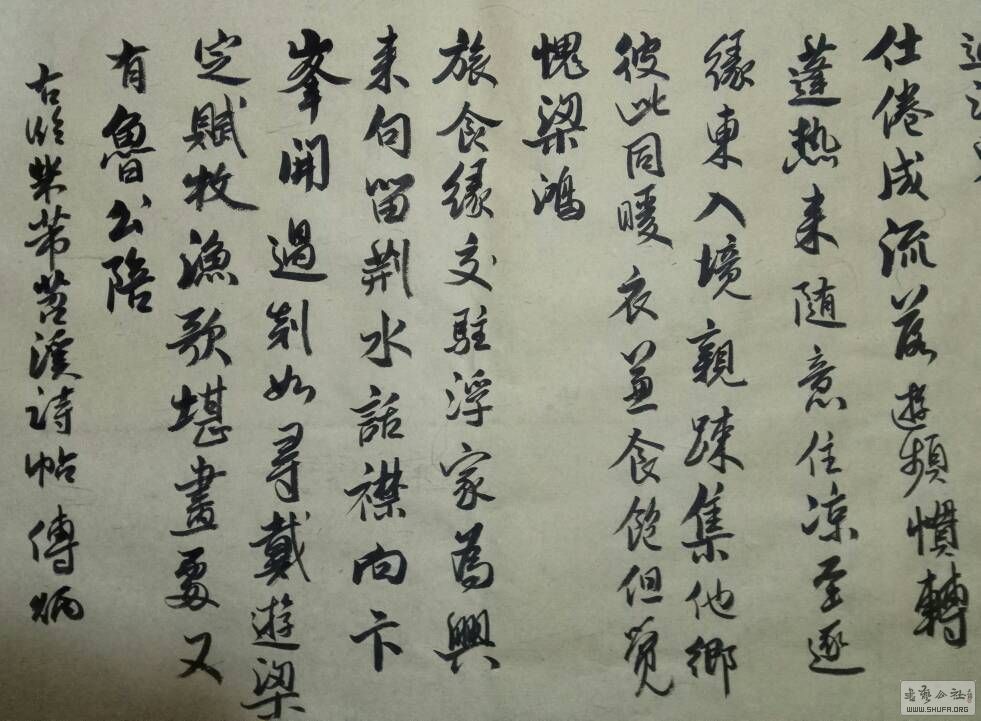 仕倦成流落遊頻慣轉
蓬熱来随意住凉至逐
緣東入境親疎集他鄉
彼此同暖衣兼食飽但覺
愧梁鴻
旅食緣交駐浮家為興
来句留荆水話襟向卞
峯開過剡如尋戴遊梁
定賦枚漁歌堪畫處又
有魯公陪
右临米芾苕溪詩帖 傅炳
书艺公社
WWW.SHUFA.ORG